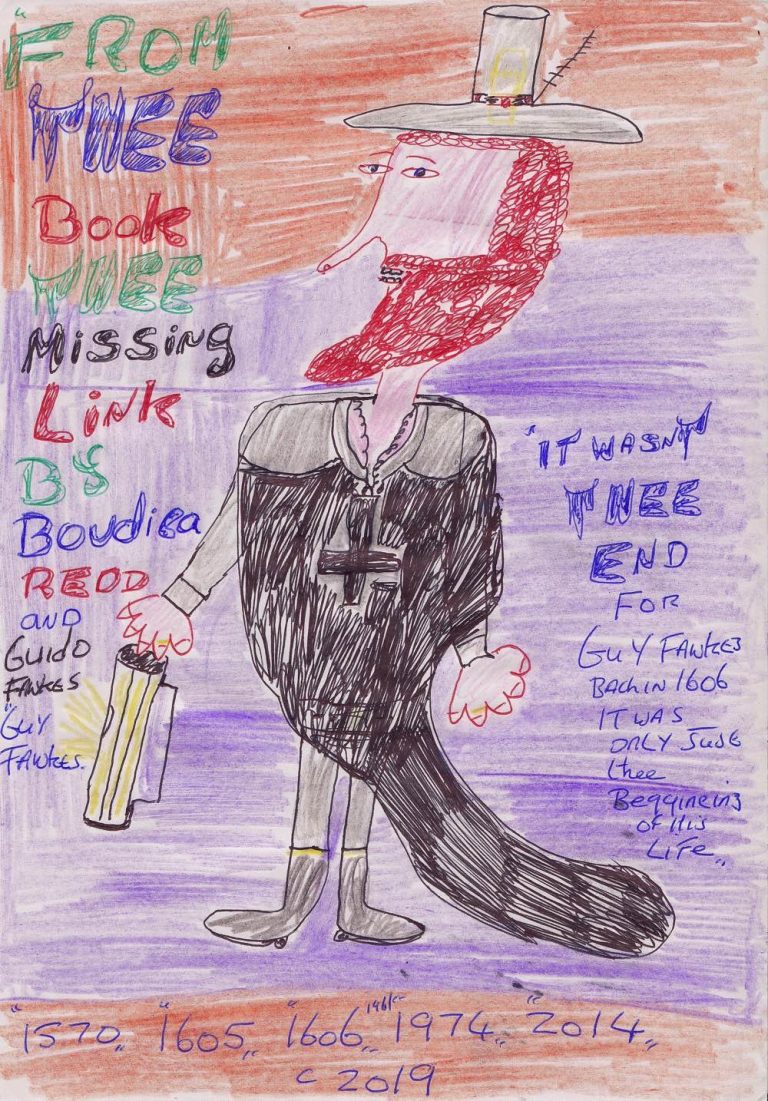 "FROM
THEE
Book
THEE
Missing
Link
BY
Boudica
REDD
AND
GUIDO
FAWKES
"GUY
FAWKES.
"IT WASNT
THEE
END
FOR
GUY FAWKES
BACK IN 1606
IT WAS
ONLY JUSE
thee
Beggineing
of His
LIFE"
"1570" "1605" "1606" 1974" "2014"
c 2019